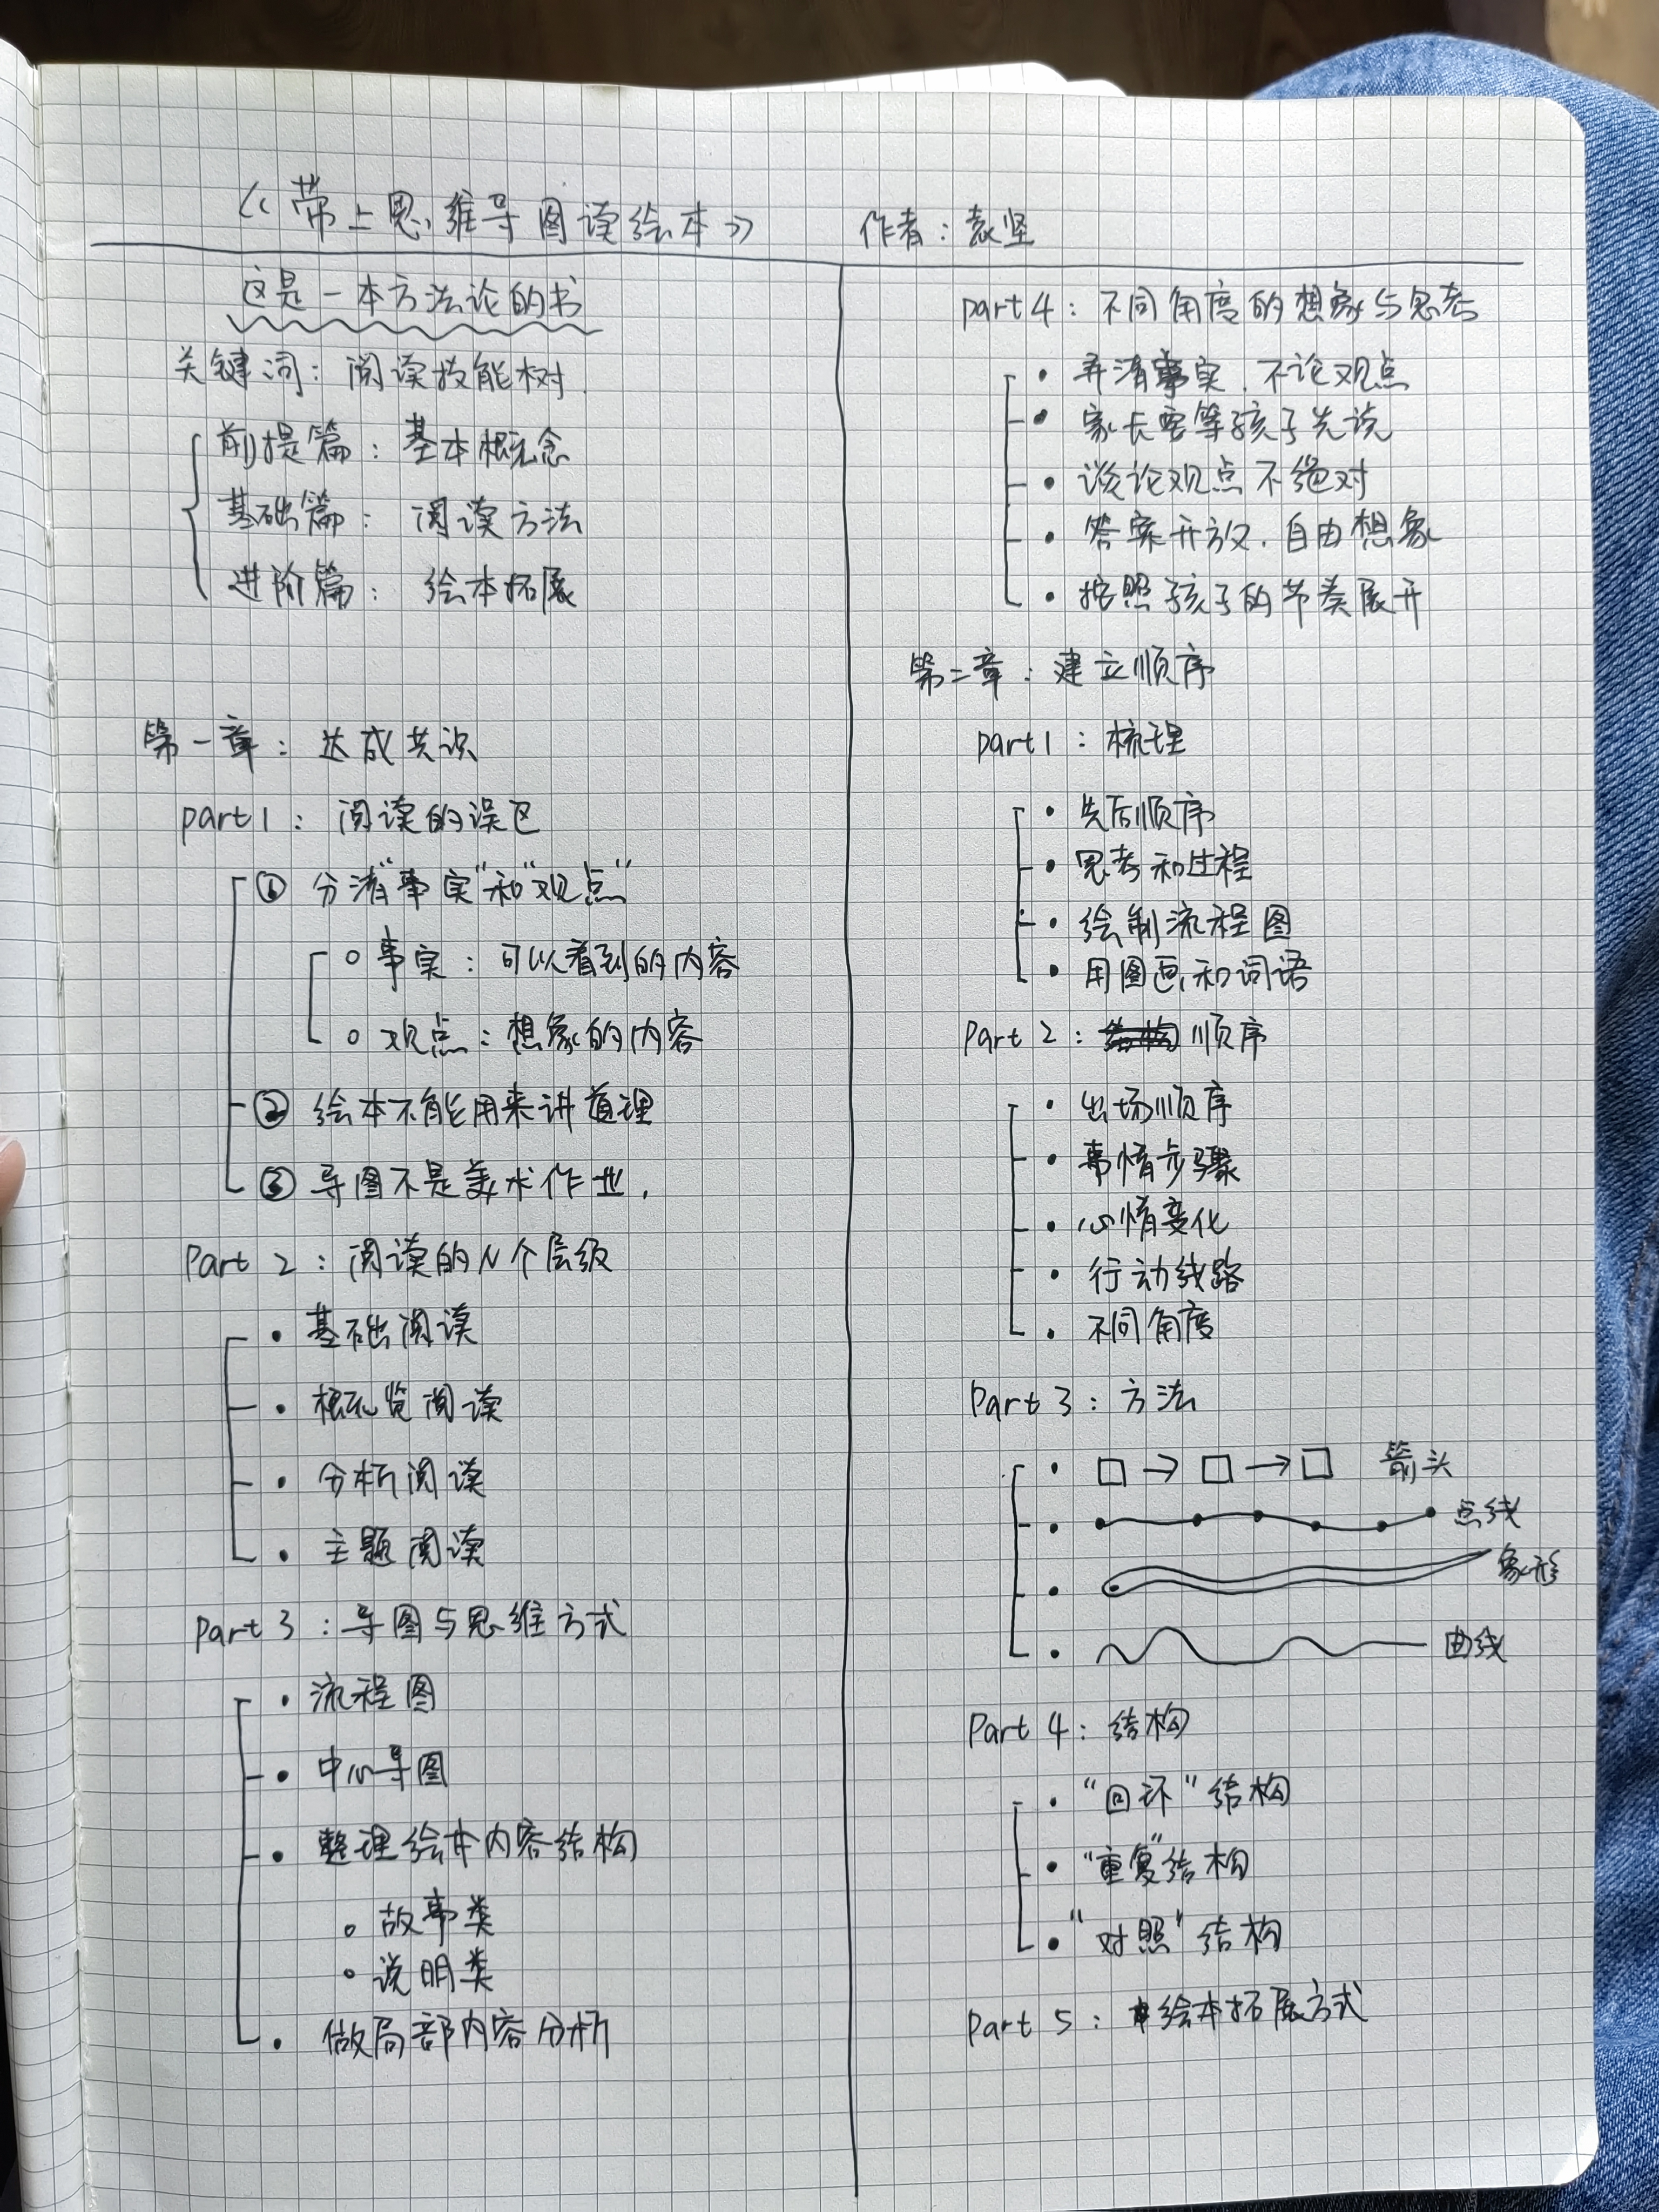 《带上思维导图读绘本》 作者：袁坚
这是一本方法论的书
关键词：阅读技能树
前提篇：基本概念
基础篇：阅读方法
进阶篇：绘本拓展
第一章：达成共识
part1：阅读的误区
① 分清“事实”和“观点”
事实：可以看到的内容
观点：想象的内容
② 绘本不能用来讲道理
③ 导图不是美术作业.
Part 2：阅读的N个层级
· 基础阅读
· 概览阅读
· 分析阅读
· 主题阅读
Part 3：导图与思维方式
· 流程图
· 中心导图
· 整理绘本内容结构
故事类
说明类
· 做局部内容分析
part4：不同角度的想象与思考
· 弄清事实.不论观点
· 家长要等孩子先说
· 谈论观点不绝对
· 答案开放.自由想象
· 按照孩子的节奏展开
第二章：建立顺序
part1：梳理
· 先后顺序
· 思考和过程
· 绘制流程图
· 用图画和词语
Part 2：顺序
· 出场顺序
· 事情步骤
· 心情变化
· 行动线路
· 不同角度
Part 3：方法
· □→□→□ 箭头
· 点线
· 象形
· 曲线
Part 4：结构
· “回环”结构
· “重复”结构
· “对照”结构
Part 5：绘本拓展方式